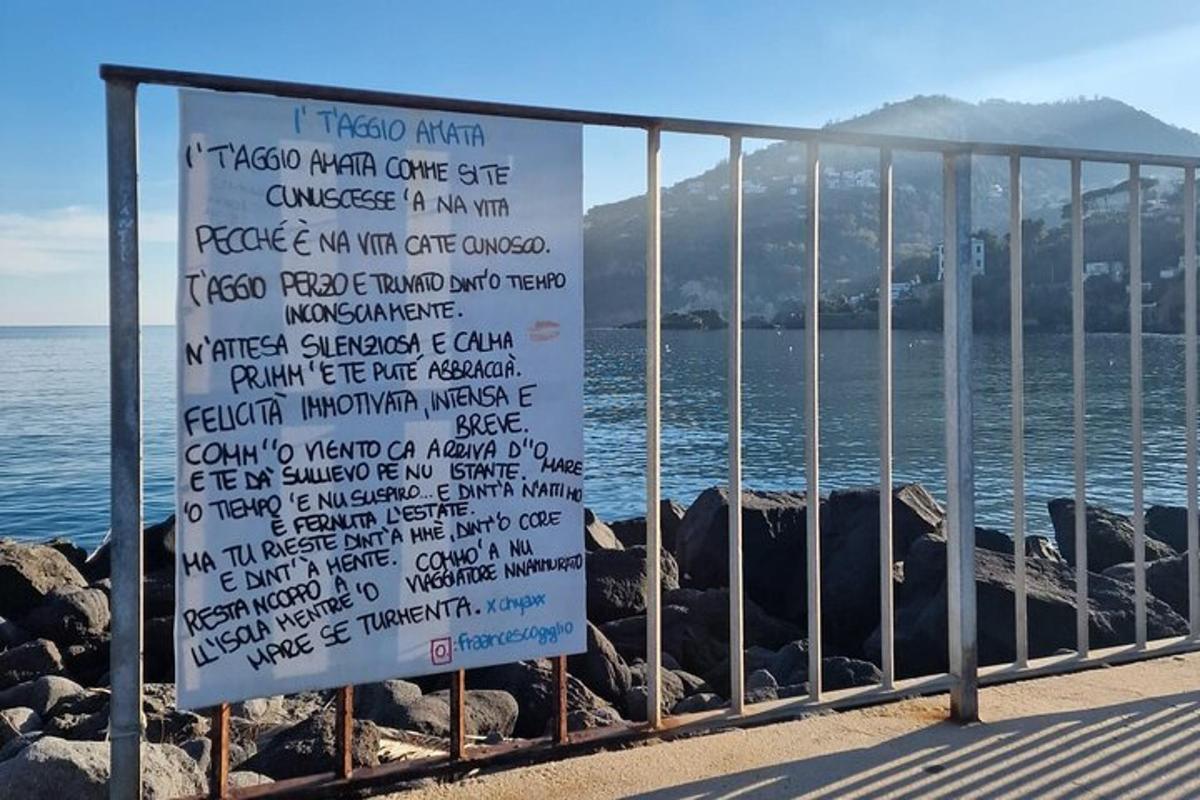 I' T'AGGIO AMATA
I' T'AGGIO AMATA COMME SI TE
CUNUSCESSE 'A NA VITA
PECCHÉ È NA VITA CA TE CUNOSCO.
T'AGGIO PERZO E TRUVATO DINT'O TIEMPO
INCONSCIAMENTE.
N'ATTESA SILENZIOSA E CALMA
PRIMM 'E TE PUTÉ ABBRACCIÀ.
FELICITÀ IMMOTIVATA, INTENSA E
BREVE.
COMM' 'O VIENTO CA ARRIVA D' 'O
MARE
E TE DÀ SULLIEVO PE NU ISTANTE.
'O TIEMPO 'E NU SUSPIRO... E DINT'A N'ATTIMO
È FERNUTA L'ESTATE.
MA TU RIESTE DINT'A MMÈ, DINT'O CORE
E DINT'A MENTE. COMMO' A NU
RESTA NCOPPO A VIAGGIATORE NNAMMURATO
LL'ISOLA MENTRE 'O
MARE SE TURMENTA. x chyaxx
:fraancescogiglio